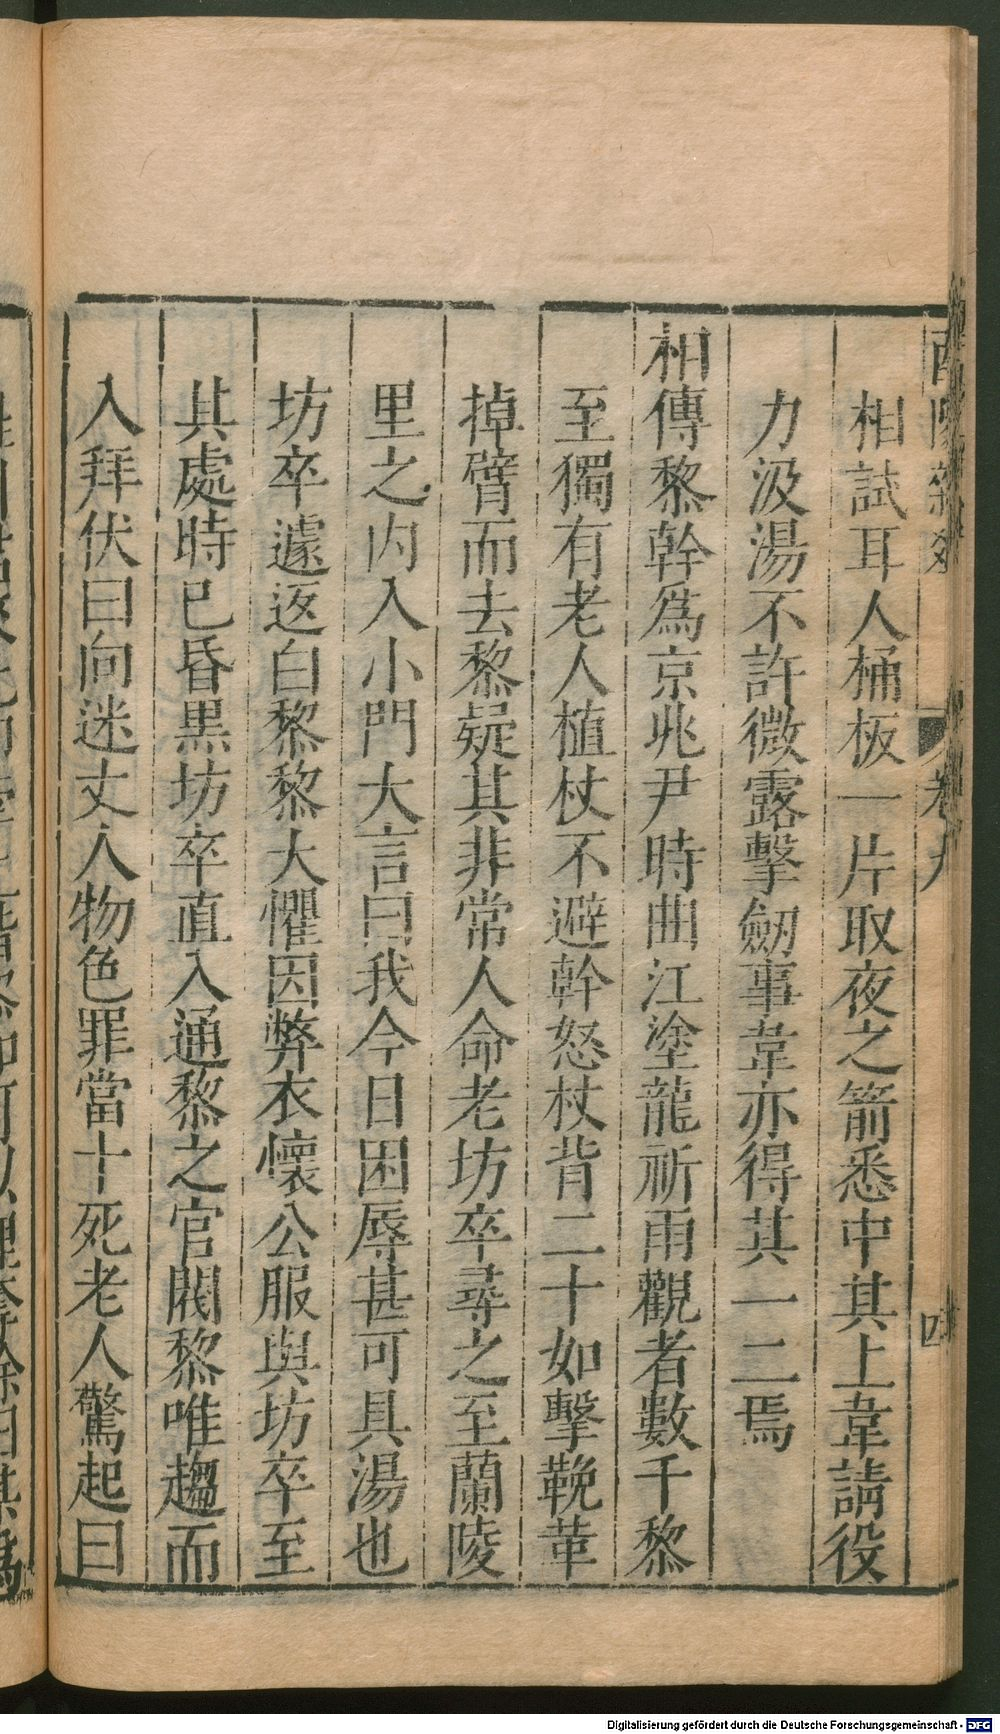 酉陽雜俎 卷九 四
相試耳人桶板一片取夜之箭悉中其上韋請役
力汲湯不許微露擊劒事韋亦得其一二焉
相傳黎幹爲京兆尹時曲江塗龍祈雨觀者數千黎
至獨有老人植杖不避幹怒杖背二十如擊鞔革
掉臂而去黎疑其非常人命老坊卒尋之至蘭陵
里之内入小門大言曰我今日困辱甚可具湯也
坊卒遽返白黎黎大懼因弊衣懷公服與坊卒至
其處時已昏黒坊卒直入通黎之官閥黎唯趨而
入拜伏曰向迷丈人物色罪當十死老人驚起曰
Digitalisierung gefördert durch die Deutsche Forschungsgemeinschaft - DFG